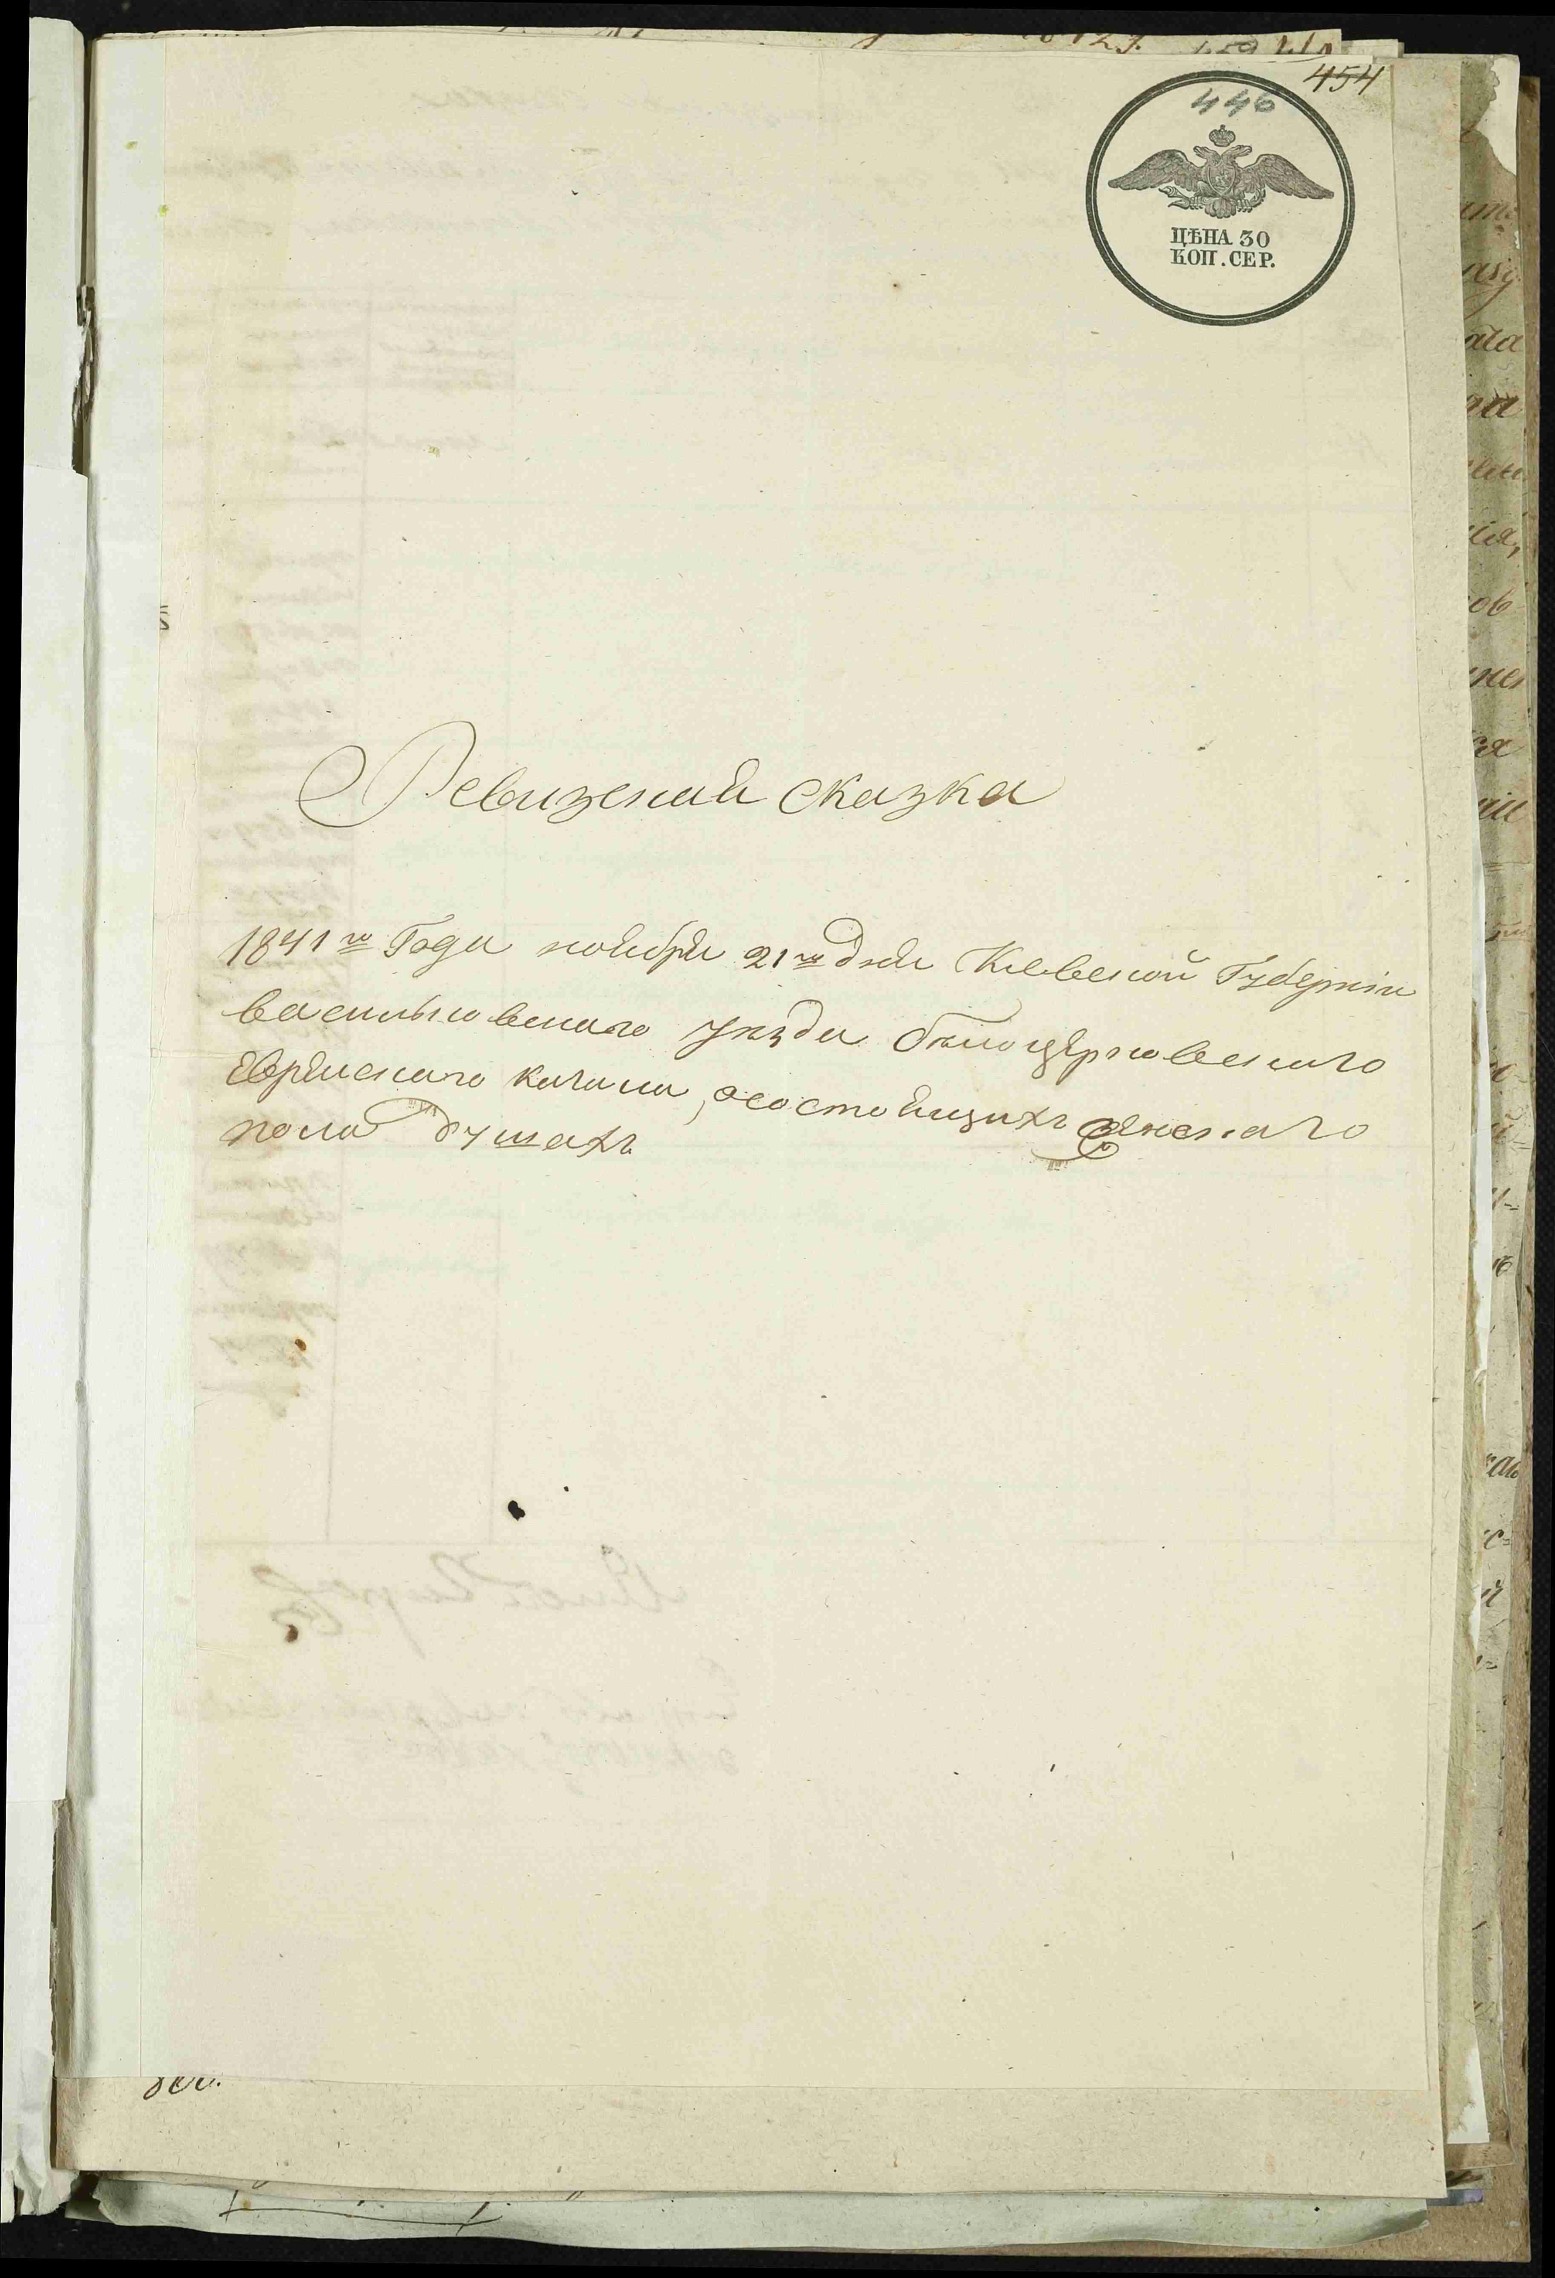 454
446
ЦѢНА 30
КОП. СЕР.
Ревизская сказка
1841го Года ноября 21го дня Киевской Губерніи
васильковскаго уѣзда бѣлоцерковскаго
Еврейскаго кагала, о состоящихъ женскаго
пола душахъ